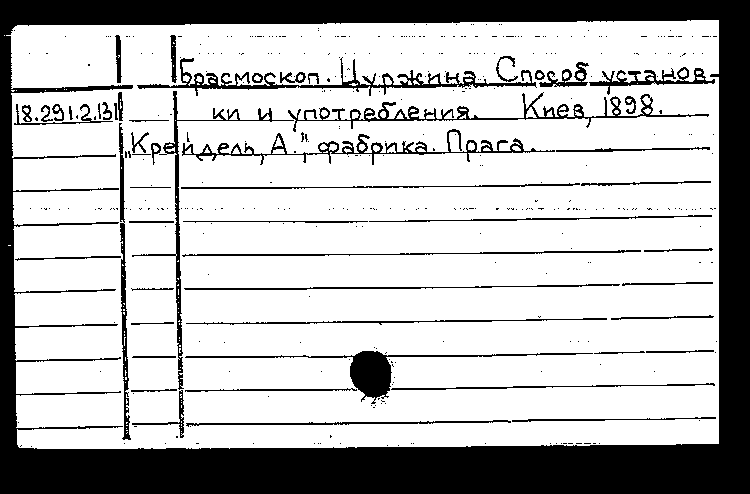 Брасмоскоп. Цуржина. Способ установ-
18.291.2.131 ки и употребления. Киев, 1898.
„Крейдель, А.", фабрика. Прага.